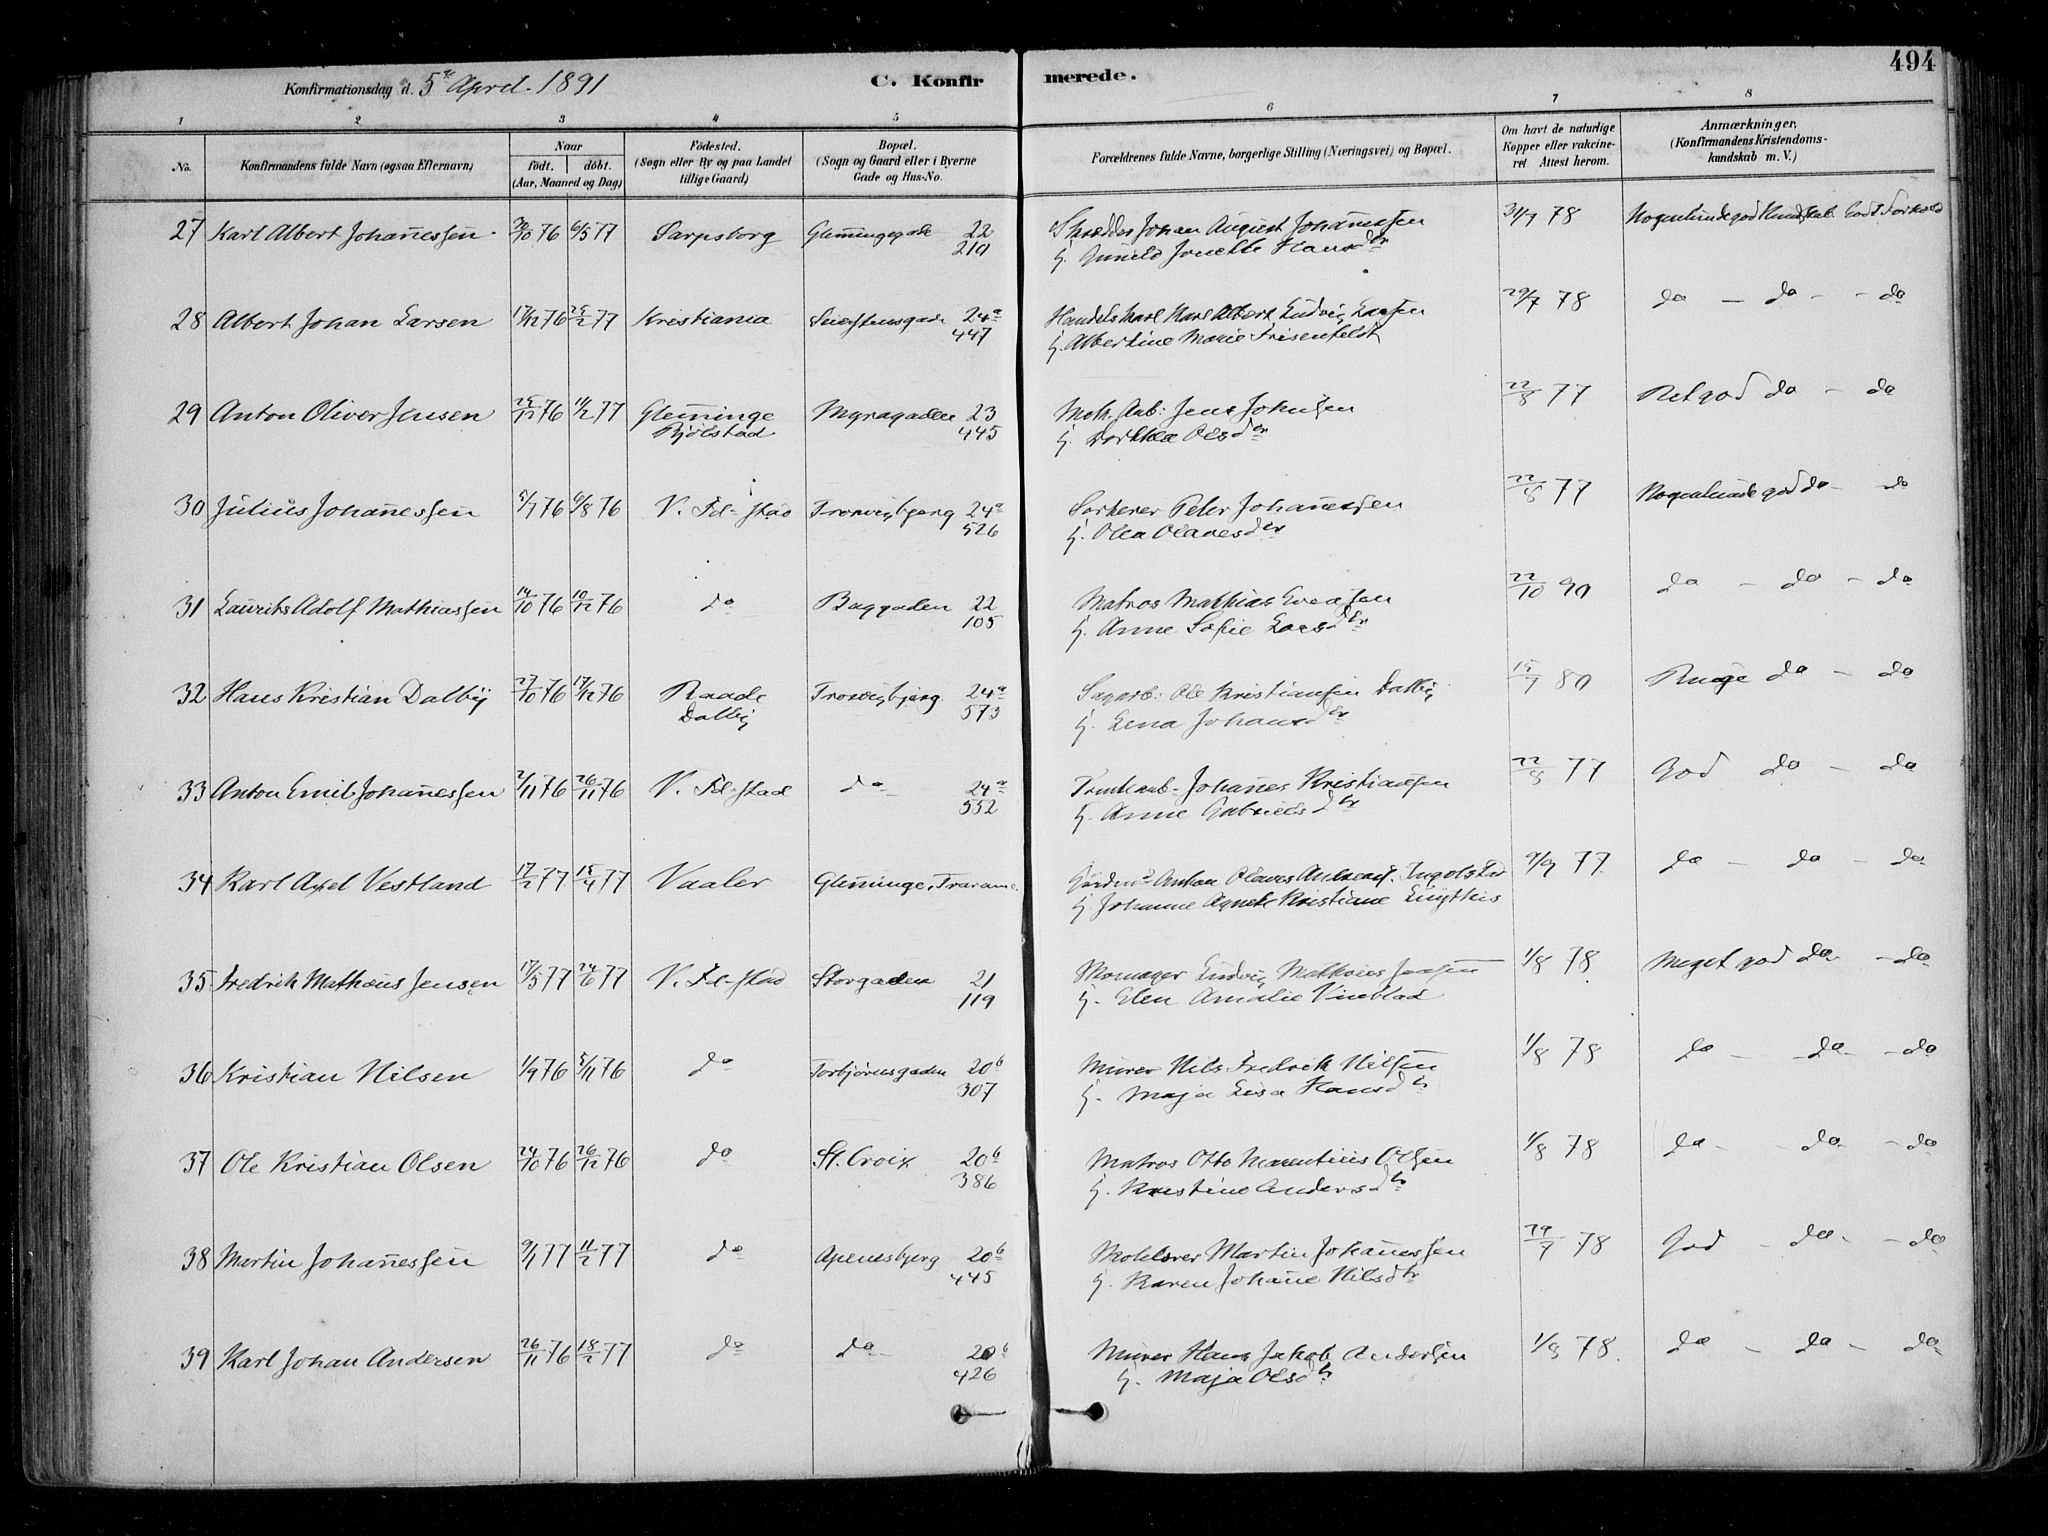 494
Konfirmationsdag d. 5te April 1891
C. Konfirmerede.
1 2 3 4 5 6 7 8
No.
Konfirmandens fulde Navn (ogsaa Efternavn)
Naar
födt. döbt.
(Aar, Maaned og Dag)
Födested.
(Sogn eller By og paa Landet
tillige Gaard)
Bopæl.
(Sogn og Gaard eller i Byerne
Gade og Hus-No.
Forældrenes fulde Navne, borgerlige Stilling (Næringsvei) og Bopæl.
Om havt de naturlige
Kopper eller vakcine-
ret Attest herom.
Anmærkninger,
(Konfirmandens Kristendoms-
kundskab m. V.)
27 Karl Albert Johan̄essen 30/10 76 6/5 77 Sarpsborg Glem̄ingegade 22 Skrædder Johan August Johan̄essen 31/7 78 Nogenlunde god Kundskab. Godt Forhold
219 H. Gunild Jonette Hansdtr
28 Albert Johan Larsen 17/12 76 25/2 77 Kristiania 24a Handelskarl Karl Albert Ludvig Larsen 29/7 78 do – do – do
447 H. Albertine Marie Frisenfeldt
29 Anton Oliver Jensen 25/12 76 77 Glem̄inge Myragaden 23 Moh. Arb: Jens Johnsen 22/8 77 Ret god do – do
Bjölstad 445 H. Dorthea Olsdtr
30 Julius Johan̄essen 5/7 76 6/8 76 V. Fd-stad Trosvigbjerg 24a Peter Johan̄essen 22/8 77 Nogenlunde god do – do
526 H. Olea Olavesdtr
31 Laurits Adolf Mathiassen 14/10 76 10/12 76 do Baggaden 22 Matros Mathias Evensen 22/10 90 do – do – do
105 H. Anne Sofie Larsdtr
32 Hans Kristian Dalby 27/10 76 17/12 76 Raade Trosvigbjerg 24a Sagarb: Ole Kristiansen Dalby 15/7 80 do – do
Dalby 573 H. Lena Johansdtr
33 Anton Emil Johan̄essen 2/11 76 26/11 76 V. Fd-stad do 24a Johan̄es Kristiansen 22/8 77 God do – do
552 H. Anne Gabrielsdtr
34 Karl Axel Vestland 17/2 77 15/4 77 Vaaler Glem̄inge, Traramc. Anton Olaves Andreas. Ingolstad 9/9 77 do – do – do
H. Johanne Agnete Kristiane
35 Fredrik Mathæus Jensen 17/5 77 24/6 77 V. Fd-stad Storgaden 21 Skomager Ludvig Mathæus Jensen 1/8 78 Meget god do – do
119 H. Elen Amalie Vineblad
36 Kristian Nilsen 1/9 76 5/11 76 do Torbjörnsgaden 20b Murer Nils Fredrik Nilsen 1/8 78 do – do – do
307 H. Maja Lisa Hansdtr
37 Ole Kristian Olsen 24/10 76 26/12 76 do St. Croix 20b Matros Otto Marentius Olsen 1/8 78 do – do – do
386 H. Kristine Andersdtr
38 Martin Johan̄essen 9/1 77 11/2 77 do Apenesbjerg 20b Martin Johan̄essen 29/7 78 God – do – do
445 H. Karen Johan̄e Nilsdtr
39 Karl Johan Andersen 26/11 76 18/2 77 do do 20b Murer Hans Jakob Andersen 1/8 78 do – do – do
426 H. Maja Olsdtr